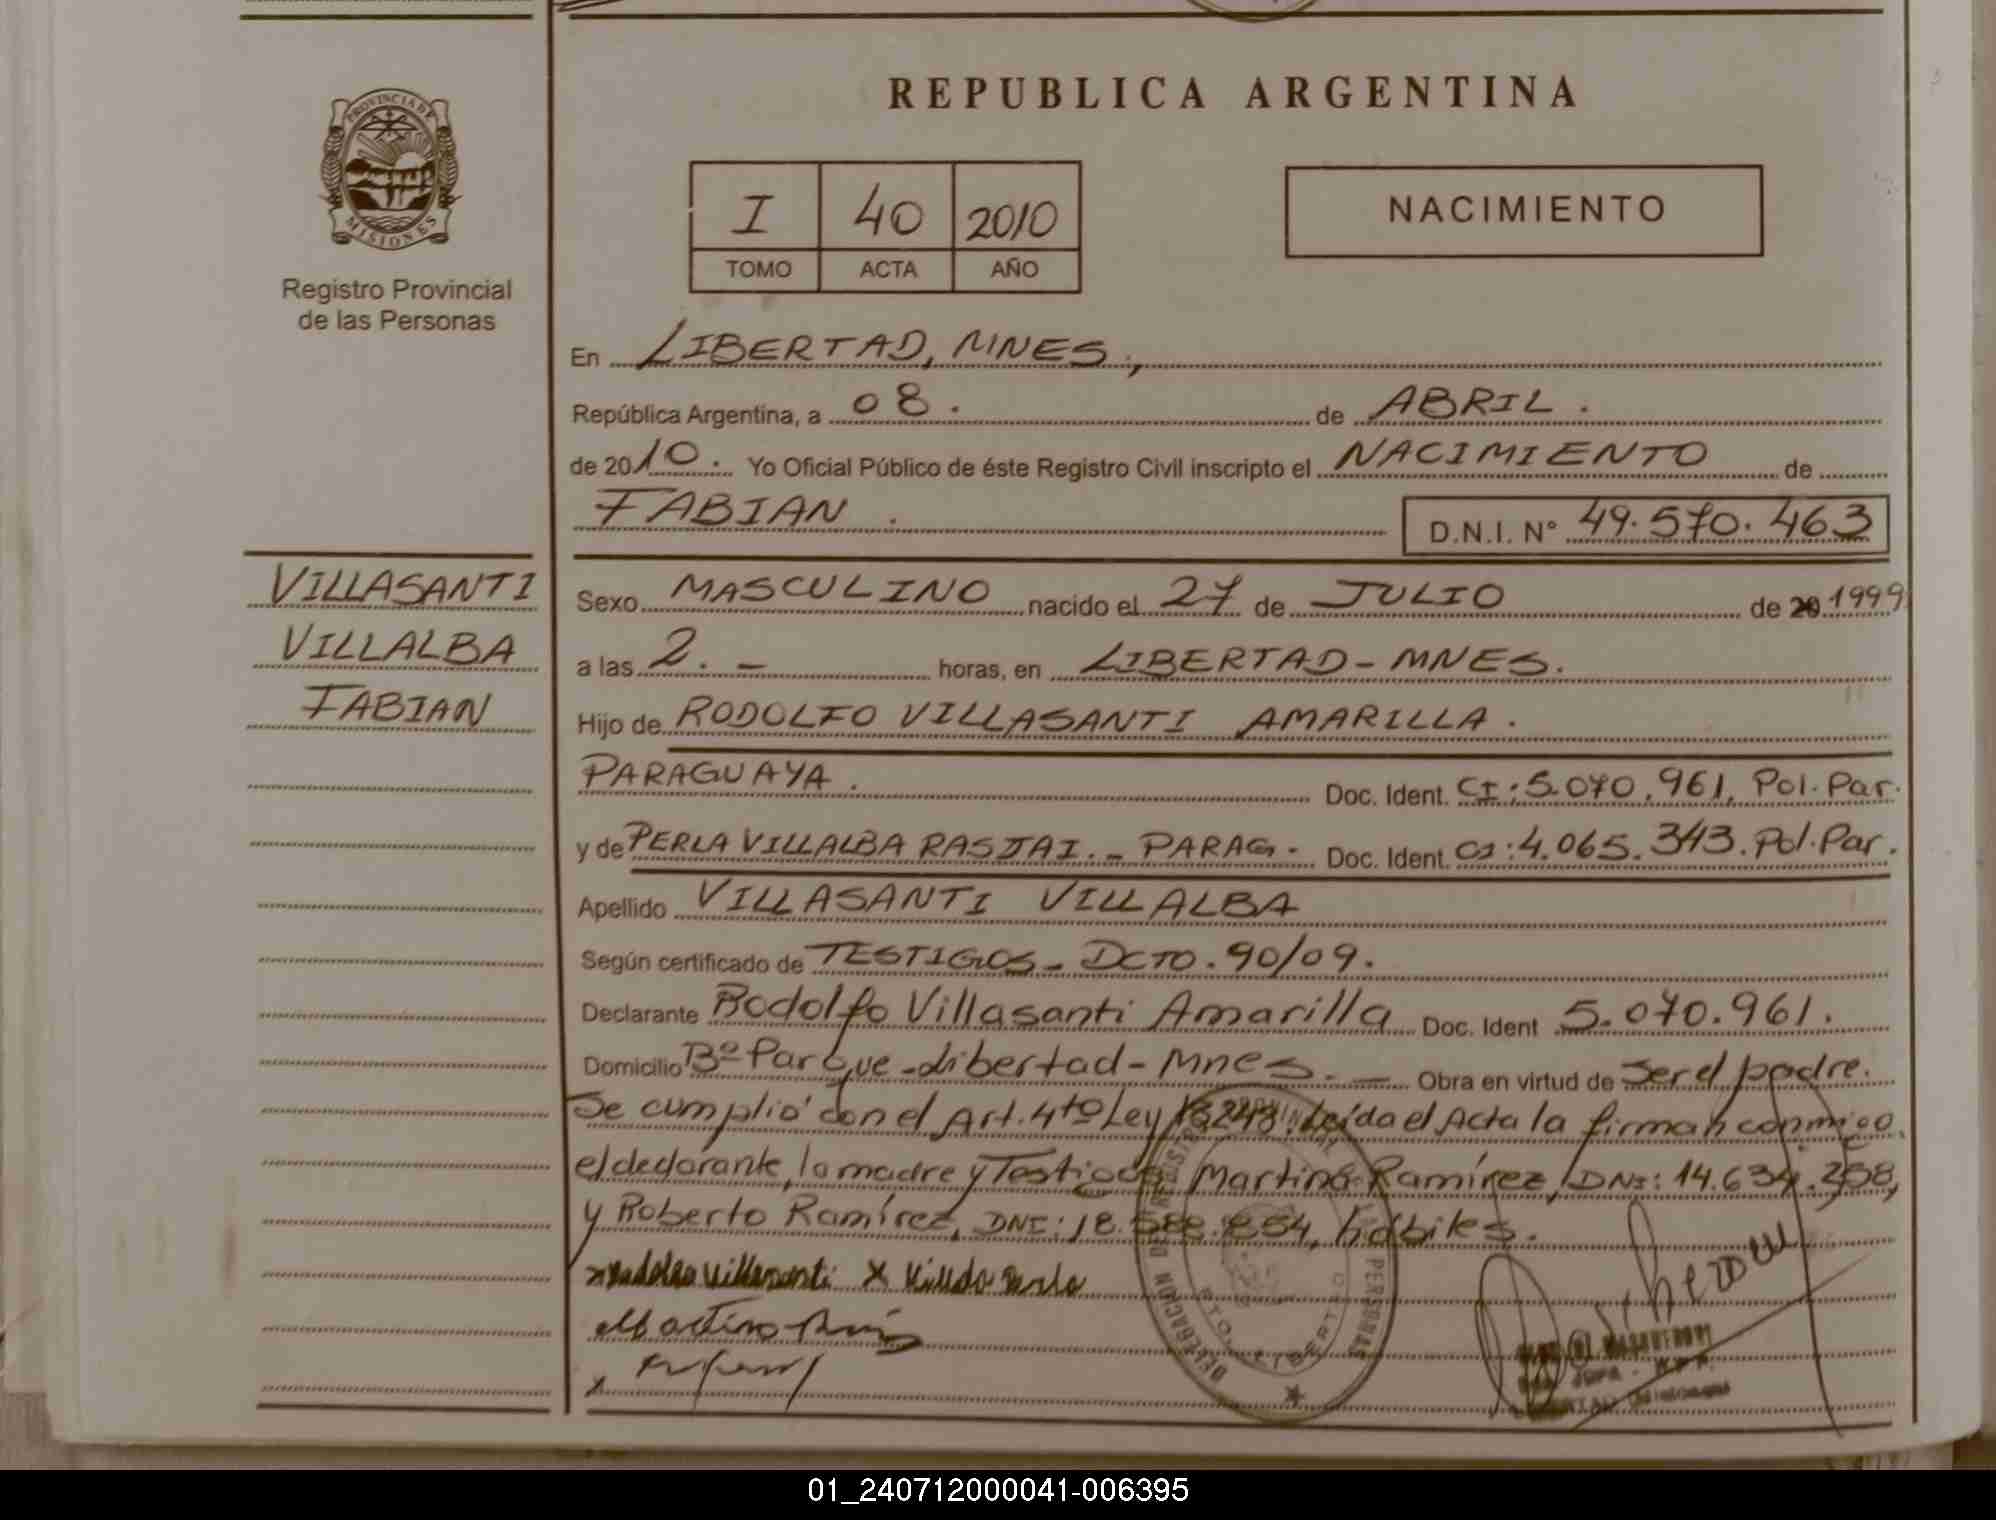 REPUBLICA ARGENTINA
PROVINCIA DE
MISIONES
Registro Provincial
de las Personas
I 40 2010
TOMO ACTA AÑO
NACIMIENTO
En LIBERTAD, MNES.,
República Argentina, a 08. de ABRIL.
de 2010. Yo Oficial Público de éste Registro Civil inscripto el NACIMIENTO de
FABIAN. D.N.I. N° 49.570.463
VILLASANTI
VILLALBA
FABIAN
Sexo MASCULINO nacido el 27 de JULIO de 20 1999
a las 2. - horas, en LIBERTAD - MNES.
Hijo de RODOLFO VILLASANTI AMARILLA.
PARAGUAYA. Doc. Ident. CI: 5.070.961, Pol. Par.
y de PERLA VILLALBA . - PARAG. Doc. Ident. CI: 4.065.343. Pol. Par.
Apellido VILLASANTI VILLALBA
Según certificado de TESTIGOS - DCTO. 90/09.
Declarante Rodolfo Villasanti Amarilla Doc. Ident 5.070.961.
Domicilio Bº Parque - Libertad - Mnes. - Obra en virtud de Ser el padre.
Se cumplió con el Art. 4to Ley 18248. Leída el Acta la firman conmigo
el declarante, la madre y Testigos Ramírez, DNI: 14.634.258,
y Roberto Ramírez, DNI: 18. .854, hábiles.
DELEGACION DEL REGISTRO PROVINCIAL DE LAS PERSONAS
01_240712000041-006395